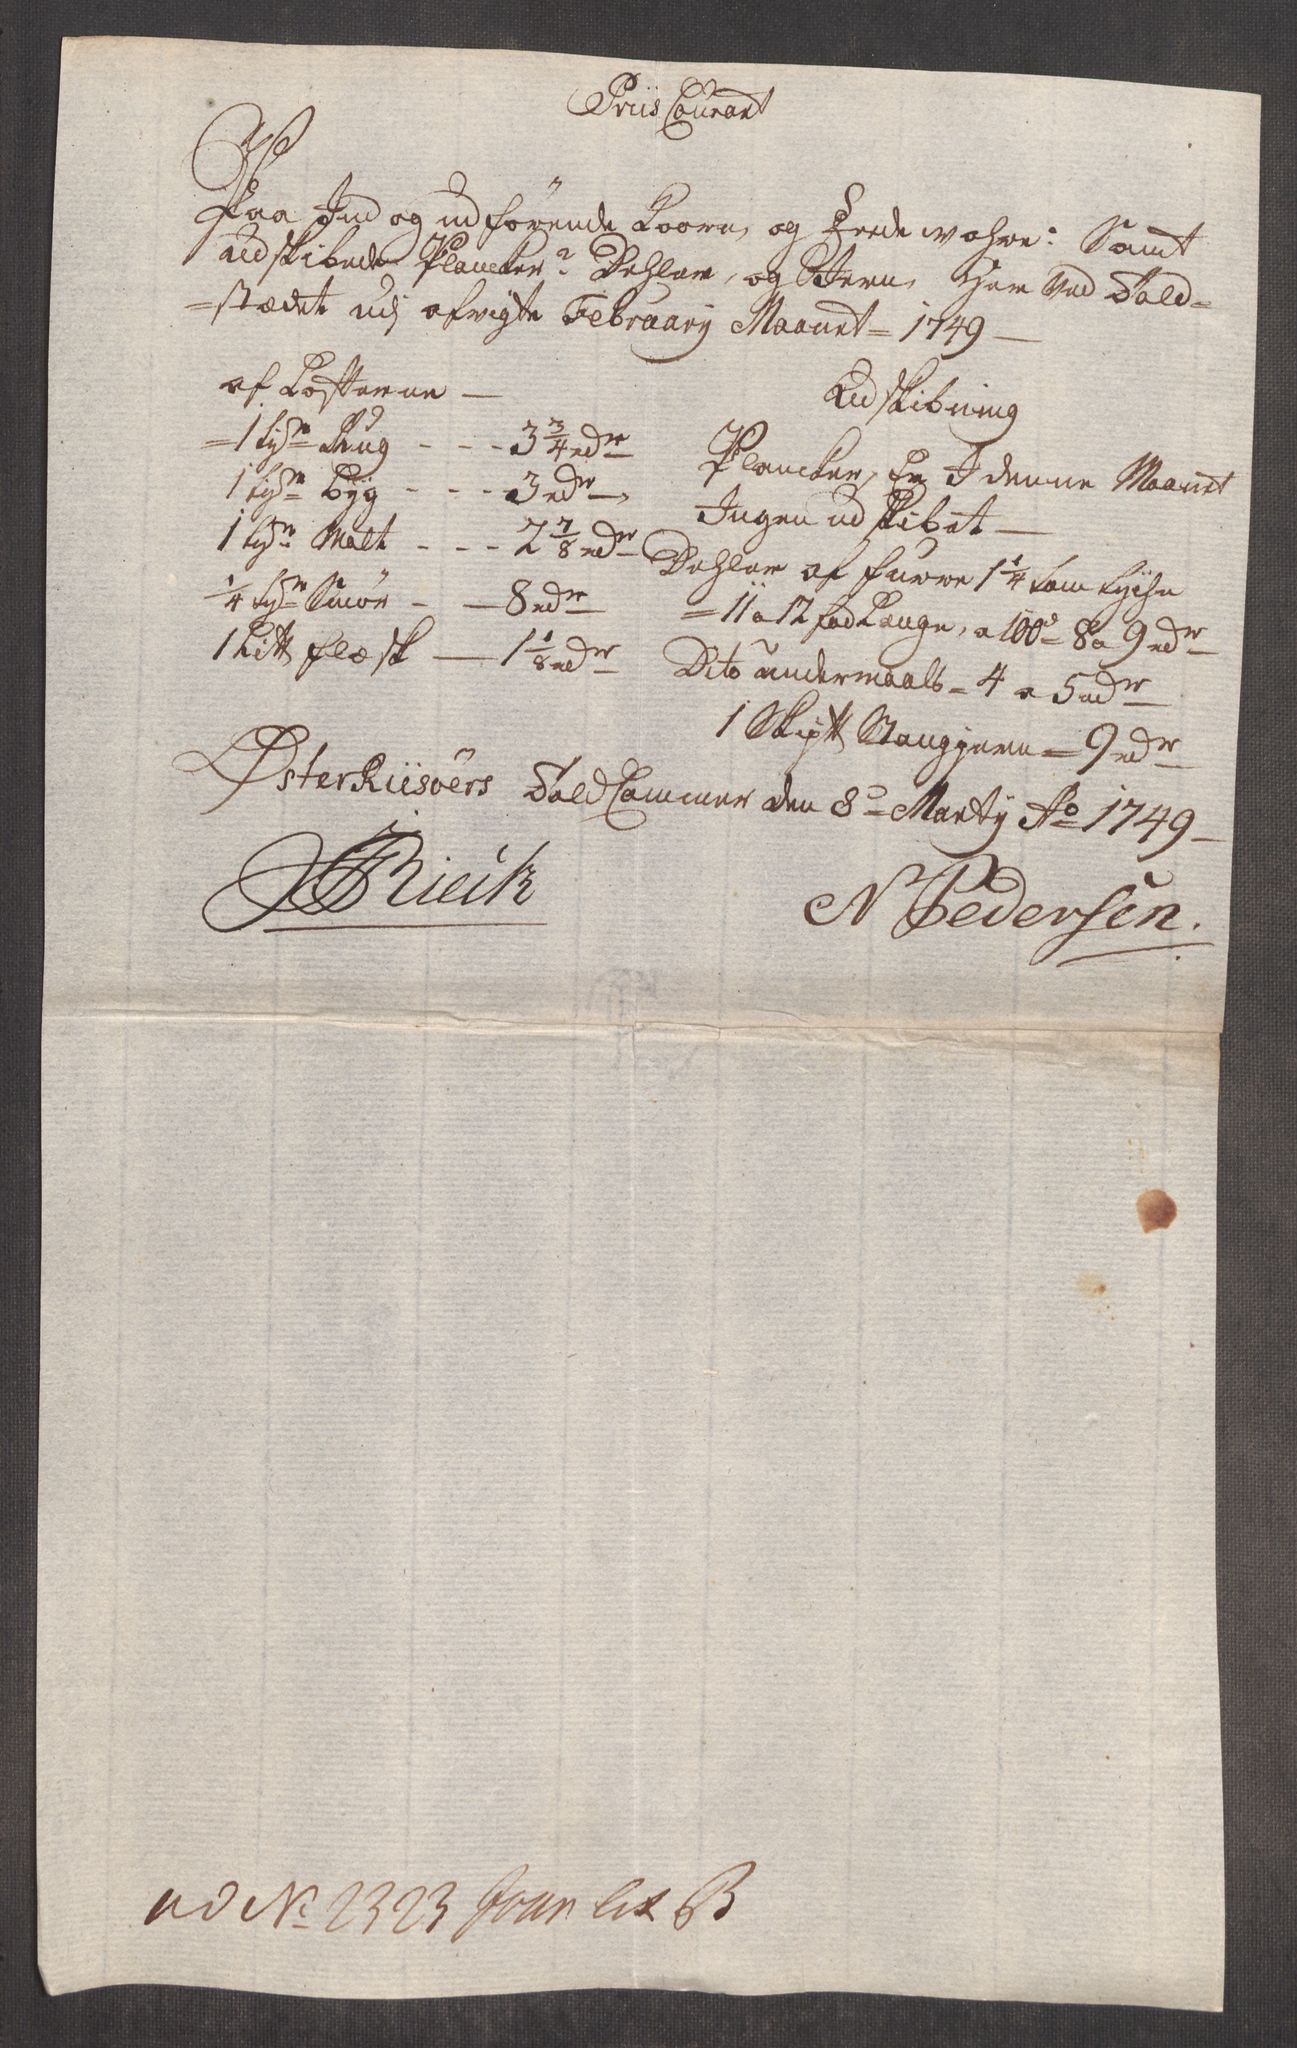 Priis Courant
Paa Ind og udförende Koorn, og Fede wahre: Samt
udskibede Plancker, Dehler, og Jern, Her ved Told-
=stædet udj afvigte February Maanet = 1749 —
af Kosterne —
=1 tyn Rug - - - 3 3/4 rdr
1 tyn Byg - - - 3 rdr
1 tyn Malt - - - 2 7/8 rdr
1/4 tyn Smör - — 8 rdr
1 Litt flæsk — 1 1/8 rdr
Udskibning
Plancker, Er I denne Maanet
Ingen udskibet —
Dehler af furre 1 1/4 tom tyche
=11 a 12 fod Lange, a 100d = 8 a 9 rdr
Dito undermaals = 4 a 5 rdr
1 Skptt Stangjern = 9 rdr
Østerriisöers Told Cammer den 8de Marty Ao 1749 —
Rieck
N Pedersen.
ad No 2323 Jour lit B